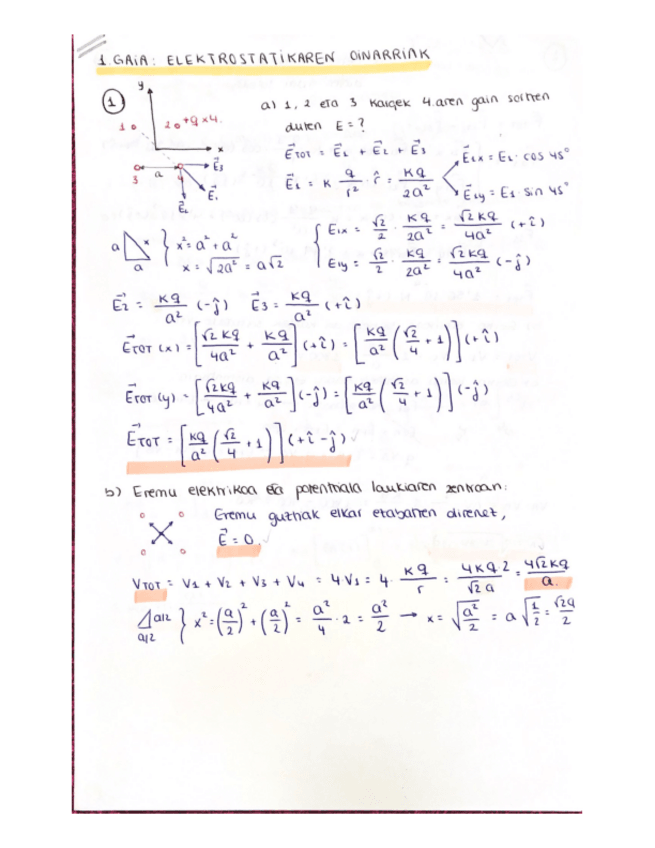 1. GAIA: ELEKTROSTATIKAREN OINARRIAK
1 a) 1, 2 eta 3 kargek 4.aren gain sortzen
duten E = ?
y x 1 2 +q x4. 3 a 4 E⃗₃ E⃗₁ E⃗₂
E⃗TOT = E⃗₁ + E⃗₂ + E⃗₃
E⃗₁ = K · q/r² · r̂ = Kq/2a² E⃗₁x = E₁ · cos 45° E⃗₁y = E₁ sin 45°
a x a } x² = a² + a² x = √2a² = a√2
{ E₁x = √2/2 · Kq/2a² = √2Kq/4a² (+î)
E₁y = √2/2 · Kq/2a² = √2Kq/4a² (-ĵ)
E⃗₂ = Kq/a² (-ĵ) E⃗₃ = Kq/a² (+î)
E⃗TOT (x) = [√2Kq/4a² + Kq/a²](+î) = [Kq/a² (√2/4 + 1)](+î)
E⃗TOT (y) = [√2Kq/4a² + Kq/a²](-ĵ) = [Kq/a² (√2/4 + 1)](-ĵ)
E⃗TOT = [Kq/a² (√2/4 + 1)](+î - ĵ)
b) Eremu elektrikoa eta potentziala laukiaren zentroan:
Eremu guztiak elkar etabanen direnez,
E⃗ = 0.
VTOT = V₁ + V₂ + V₃ + V₄ = 4V₁ = 4 · Kq/r = 4Kq2/√2a = 4√2Kq/a.
a/2 a/2 } x² = (a/2)² + (a/2)² = a²/4 · 2 = a²/2 → x = √a²/2 = a√1/2 = √2a/2